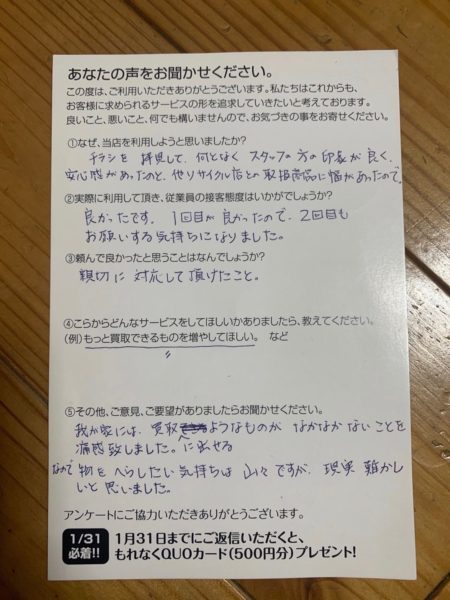 あなたの声をお聞かせください。
この度は、ご利用いただきありがとうございます。私たちはこれからも、
お客様に求められるサービスの形を追求していきたいと考えております。
良いこと、悪いこと、何でも構いませんので、お気づきの事をお寄せください。
①なぜ、当店を利用しようと思いましたか?
チラシを 拝見して、何となく スタッフの方の印象が良く、
安心感があったのと、他リサイクル店との取扱商品に幅があったので
②実際に利用して頂き、従業員の接客態度はいかがでしょうか?
良かったです。1回目が良かったので、2回目も
お願いする気持ちになりました。
③頼んで良かったと思うことはなんでしょうか?
親切に 対応して頂けたこと。
④こらからどんなサービスをしてほしいかありましたら、教えてください。
(例)もっと買取できるものを増やしてほしい。 など
〃
⑤その他、ご意見、ご要望がありましたらお聞かせください。
我が家には、買取に出せるようなものが なかなか ないことを
痛感致しました。
なので 物を へらしたい 気持ちは 山々ですが、現実 難かし
いと 思いました。
アンケートにご協力いただきありがとうございます。
1/31
必着!!
1月31日までにご返信いただくと、
もれなくQUOカード(500円分)プレゼント!